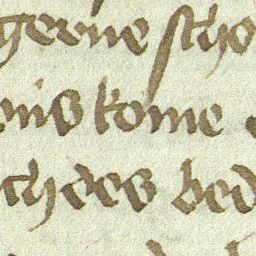 gerne scho
nis kome
ch des bed